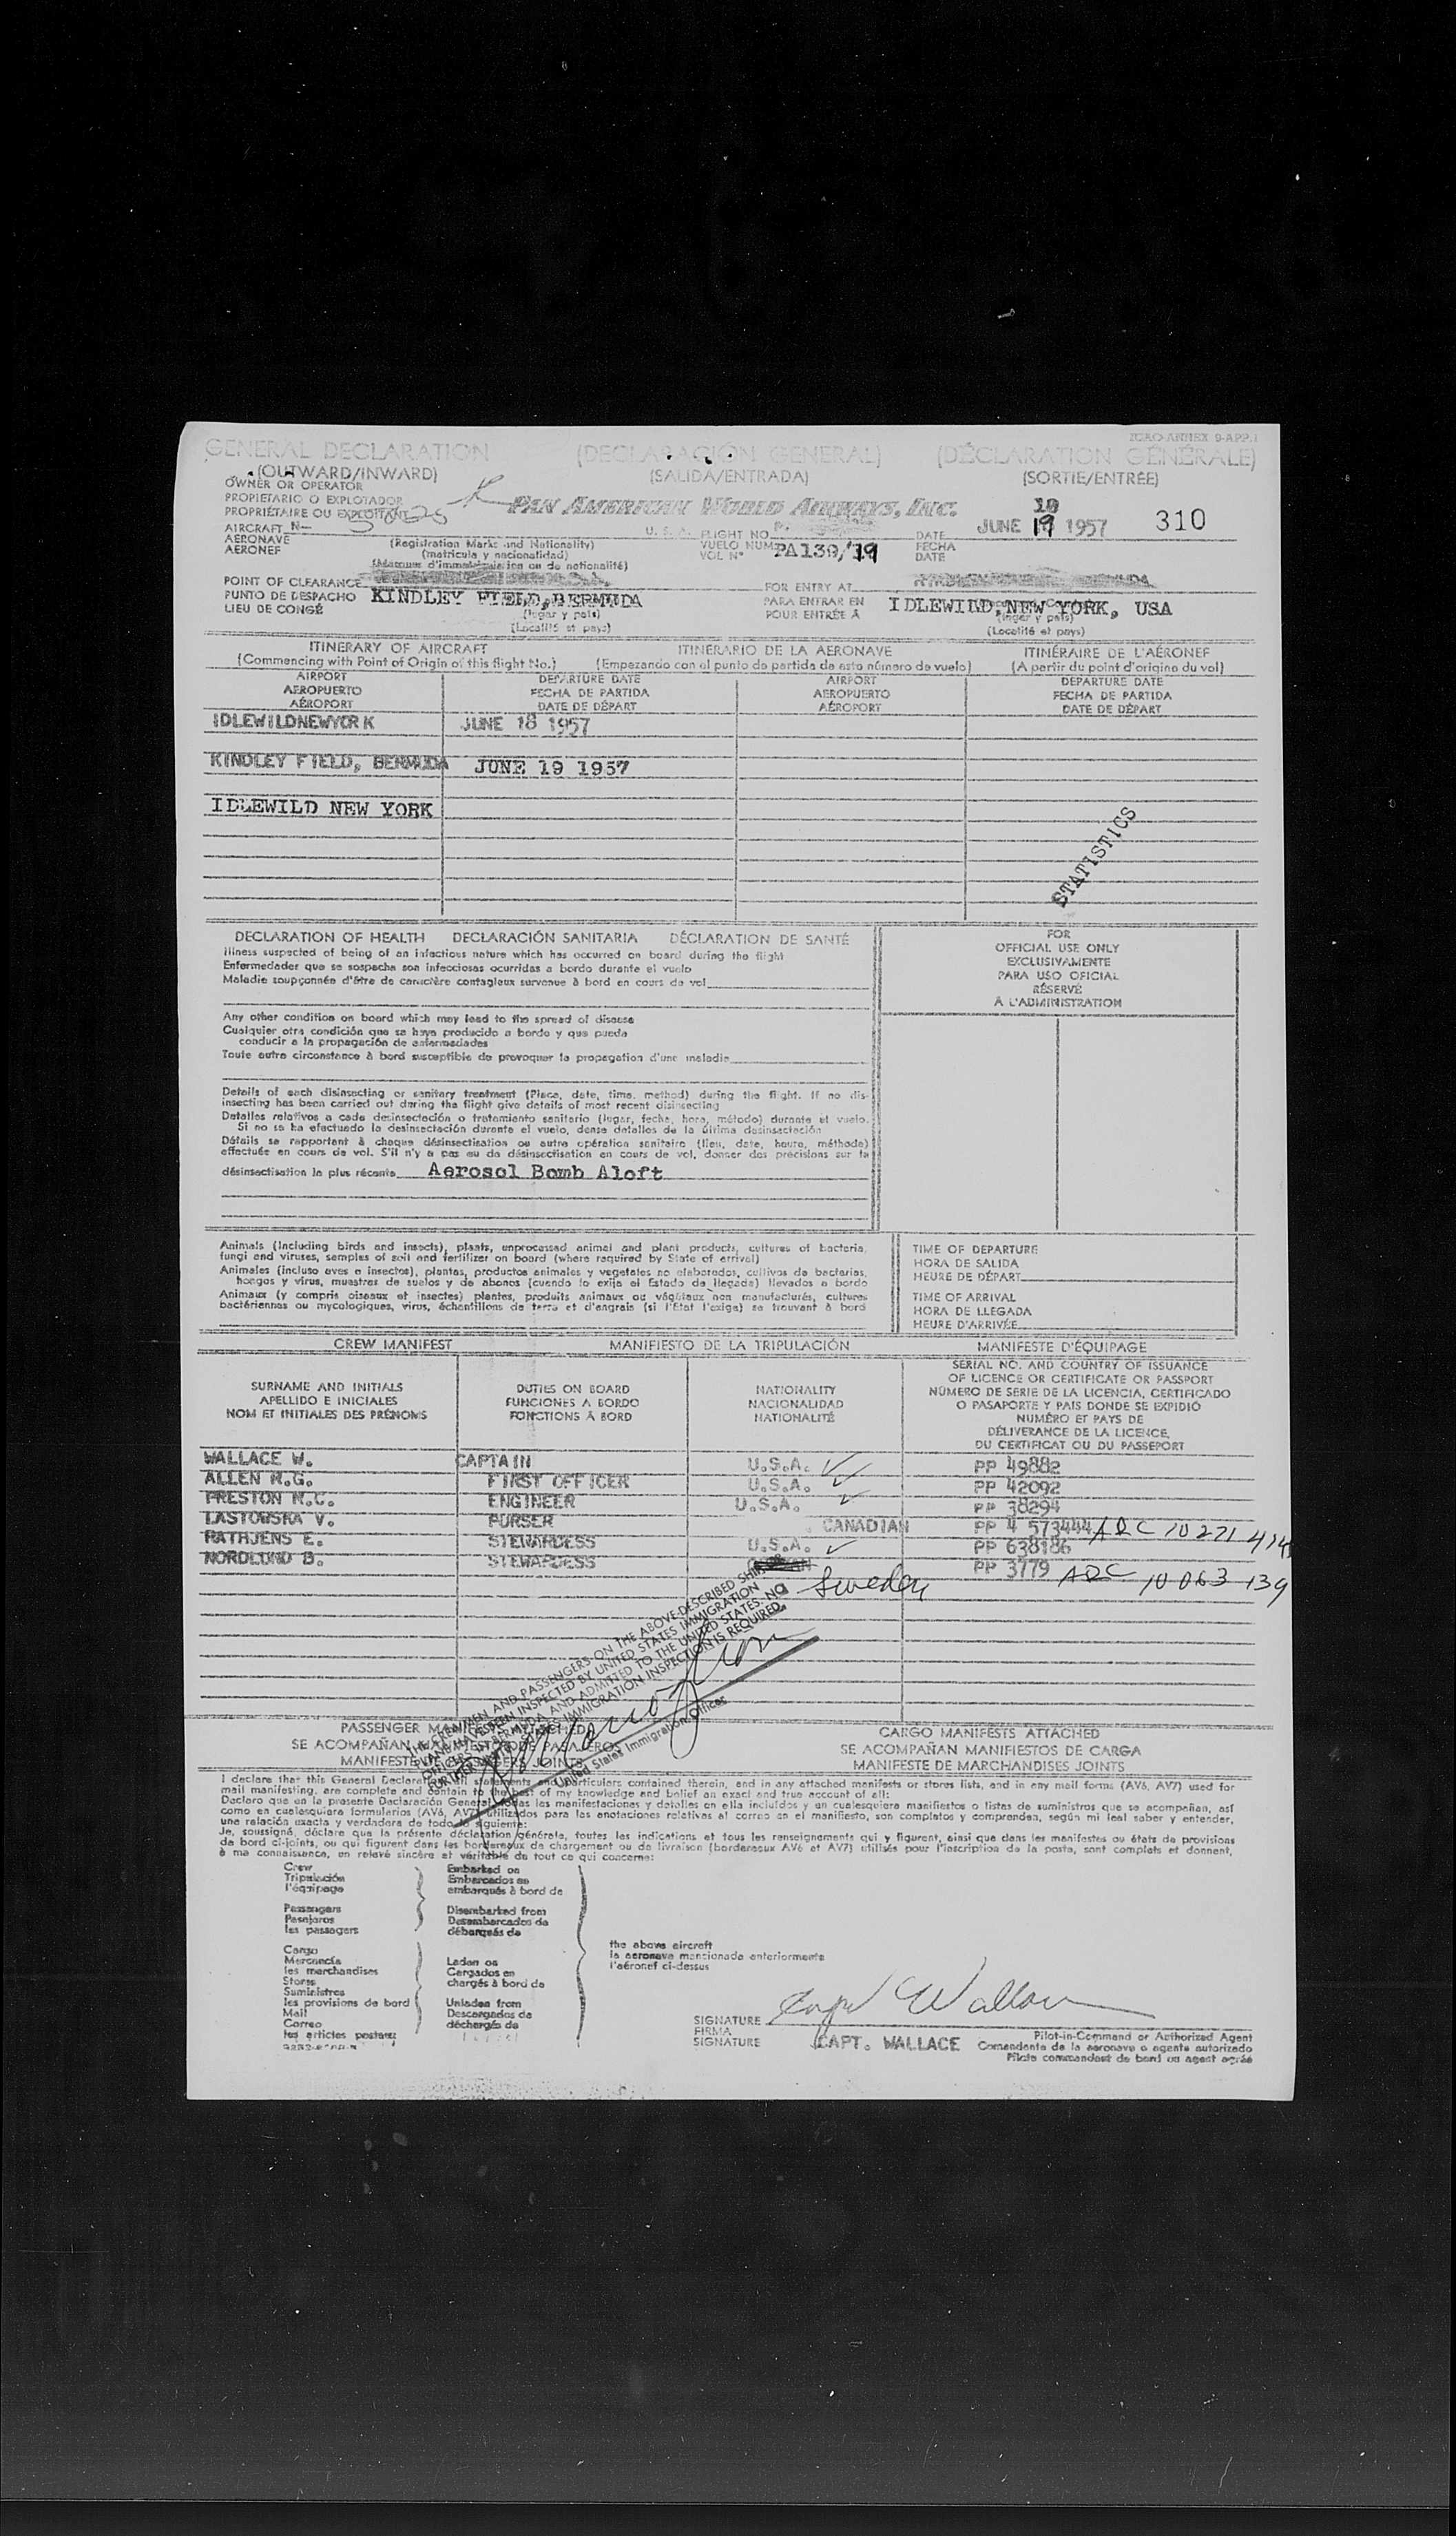 ICAO-ANNEX 9-APP.1
GENERAL DECLARATION (DECLARACIÓN GENERAL) (DÉCLARATION GÉNÉRALE)
(OUTWARD/INWARD) (SALIDA/ENTRADA) (SORTIE/ENTRÉE)
OWNER OR OPERATOR
PROPIETARIO O EXPLOTADOR
PROPRIÉTAIRE OU EXPLOITANT
PAN AMERICAN WORLD AIRWAYS, INC.
19
AIRCRAFT N- U. S. A. FLIGHT NO. DATE JUNE 19 1957 310
AERONAVE (Registration Marks and Nationality) VUELO NUM. PA130/19 FECHA
AERONEF (matrícula y nacionalidad) VOL N° DATE
(Marques d'immatriculation ou de nationalité)
POINT OF CLEARANCE FOR ENTRY AT
PUNTO DE DESPACHO KINDLEY FIELD, BERMUDA PARA ENTRAR EN IDLEWILD, NEW YORK, USA
LIEU DE CONGÉ (lugar y país) POUR ENTRÉE À (lugar y país)
(Localité et pays) (Localité et pays)
ITINERARY OF AIRCRAFT ITINERARIO DE LA AERONAVE ITINÉRAIRE DE L'AÉRONEF
(Commencing with Point of Origin of this flight No.) (Empezando con el punto de partida de este número de vuelo) (A partir du point d'origine du vol)
AIRPORT DEPARTURE DATE AIRPORT DEPARTURE DATE
AEROPUERTO FECHA DE PARTIDA AEROPUERTO FECHA DE PARTIDA
AÉROPORT DATE DE DÉPART AÉROPORT DATE DE DÉPART
IDLEWILDNEWYORK JUNE 18 1957
KINDLEY FIELD, BERMUDA JUNE 19 1957
IDLEWILD NEW YORK
STATISTICS
DECLARATION OF HEALTH DECLARACIÓN SANITARIA DÉCLARATION DE SANTÉ
Illness suspected of being of an infectious nature which has occurred on board during the flight
Enfermedades que se sospecha son infecciosas ocurridas a bordo durante el vuelo
Maladie soupçonnée d'être de caractère contagieux survenue à bord en cours de vol
FOR
OFFICIAL USE ONLY
EXCLUSIVAMENTE
PARA USO OFICIAL
RÉSERVÉ
À L'ADMINISTRATION
Any other condition on board which may lead to the spread of disease
Cualquier otra condición que se haya producido a bordo y que pueda
conducir a la propagación de enfermedades
Toute autre circonstance à bord susceptible de provoquer la propagation d'une maladie
Details of each disinsecting or sanitary treatment (Place, date, time, method) during the flight. If no dis-
insecting has been carried out during the flight give details of most recent disinsecting
Detalles relativos a cada desinsectación o tratamiento sanitario (lugar, fecha, hora, método) durante el vuelo.
Si no se ha efectuado la desinsectación durante el vuelo, dense detalles de la última desinsectación
Détails se rapportant à chaque désinsectisation ou autre opération sanitaire (lieu, date, heure, méthode)
effectuée en cours de vol. S'il n'y a pas eu de désinsectisation en cours de vol, donner des précisions sur la
désinsectisation la plus récente Aerosol Bomb Aloft
Animals (Including birds and insects), plants, unprocessed animal and plant products, cultures of bacteria,
fungi and viruses, samples of soil and fertilizer on board (where required by State of arrival)
Animales (incluso aves e insectos), plantas, productos animales y vegetales no elaborados, cultivos de bacterias,
hongos y virus, muestras de suelos y de abonos (cuando lo exija el Estado de llegada) llevados a bordo
Animaux (y compris oiseaux et insectes) plantes, produits animaux ou végétaux non manufacturés, cultures
bactériennes ou mycologiques, virus, échantillons de terre et d'engrais (si l'État l'exige) se trouvant à bord
TIME OF DEPARTURE
HORA DE SALIDA
HEURE DE DÉPART
TIME OF ARRIVAL
HORA DE LLEGADA
HEURE D'ARRIVÉE
CREW MANIFEST MANIFIESTO DE LA TRIPULACIÓN MANIFESTE D'ÉQUIPAGE
SURNAME AND INITIALS
APELLIDO E INICIALES
NOM ET INITIALES DES PRÉNOMS
DUTIES ON BOARD
FUNCIONES A BORDO
FONCTIONS À BORD
NATIONALITY
NACIONALIDAD
NATIONALITÉ
SERIAL NO. AND COUNTRY OF ISSUANCE
OF LICENCE OR CERTIFICATE OR PASSPORT
NÚMERO DE SERIE DE LA LICENCIA, CERTIFICADO
O PASAPORTE Y PAIS DONDE SE EXPIDIÓ
NUMÉRO ET PAYS DE
DÉLIVRANCE DE LA LICENCE,
DU CERTIFICAT OU DU PASSEPORT
WALLACE W. CAPTAIN U.S.A. PP 49882
ALLEN R.G. FIRST OFFICER U.S.A. PP 42092
PRESTON R.C. ENGINEER U.S.A. PP 38294
LASTOWSKA V. PURSER CANADIAN PP 4 573444 ARC 10 271 414
RATHJENS E. STEWARDESS U.S.A. PP 638186
NORDLUND B. STEWARDESS Sweden PP 3779 ARC 10 063 139
THE CREWMEN AND PASSENGERS ON THE ABOVE-DESCRIBED SHIP OR
PLANE HAVE BEEN INSPECTED BY UNITED STATES IMMIGRATION
OFFICERS AT BERMUDA AND ADMITTED TO THE UNITED STATES. NO
FURTHER UNITED STATES IMMIGRATION INSPECTION IS REQUIRED.
United States Immigration Officer
PASSENGER MANIFESTS ATTACHED CARGO MANIFESTS ATTACHED
SE ACOMPAÑAN MANIFIESTOS DE PASAJEROS SE ACOMPAÑAN MANIFIESTOS DE CARGA
MANIFESTE JOINTS MANIFESTE DE MARCHANDISES JOINTS
I declare that this General Declaration, all statements and particulars contained therein, and in any attached manifests or stores lists, and in any mail forms (AV6, AV7) used for
mail manifesting, are complete and contain to the best of my knowledge and belief an exact and true account of all:
Declaro que en la presente Declaración General, todas las manifestaciones y detalles en ella incluidos y en cualesquiera manifiestos o listas de suministros que se acompañan, así
como en cualesquiera formularios (AV6, AV7) utilizados para las anotaciones relativas al correo en el manifiesto, son completos y comprenden, según mi leal saber y entender,
una relación exacta y verdadera de todo lo siguiente:
Je, soussigné, déclare que la présente déclaration générale, toutes les indications et tous les renseignements qui y figurent, ainsi que dans les manifestes ou états de provisions
de bord ci-joints, ou qui figurent dans les bordereaux de chargement ou de livraison (bordereaux AV6 et AV7) utilisés pour l'inscription de la poste, sont complets et donnent,
à ma connaissance, un relevé sincère et véritable de tout ce qui concerne:
Crew
Tripulación
l'équipage
Passengers
Pasajeros
les passagers
Cargo
Mercancía
les marchandises
Stores
Suministros
les provisions de bord
Mail
Correo
les articles postaux
Embarked on
Embarcados en
embarqués à bord de
Disembarked from
Desembarcados de
débarqués de
Laden on
Cargados en
chargés à bord de
Unladen from
Descargados de
déchargés de
the above aircraft
la aeronave mencionada anteriormente
l'aéronef ci-dessus
SIGNATURE Capt Wallace
FIRMA
SIGNATURE CAPT. WALLACE
Pilot-in-Command or Authorized Agent
Comandante de la aeronave o agente autorizado
Pilote commandant de bord ou agent agréé